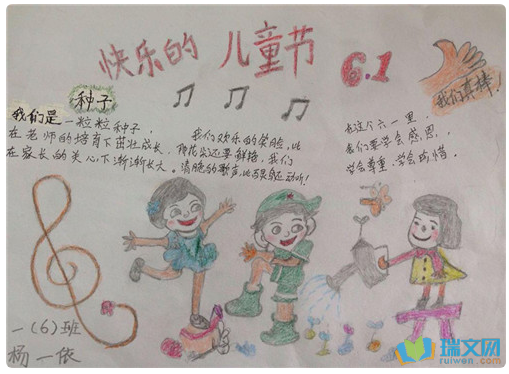 快乐的 儿童节
6.1
我们真棒！
种子
我们是一粒粒种子，
在老师的培育下茁壮成长，
在家长的关心下渐渐长大。
我们欢乐的笑脸，比
花朵还要鲜艳，我们
清脆的歌声，比百灵鸟还动听！
在这个六一里，
我们要学会感恩，
学会尊重，学会珍惜。
一（6）班
杨一依
瑞文网